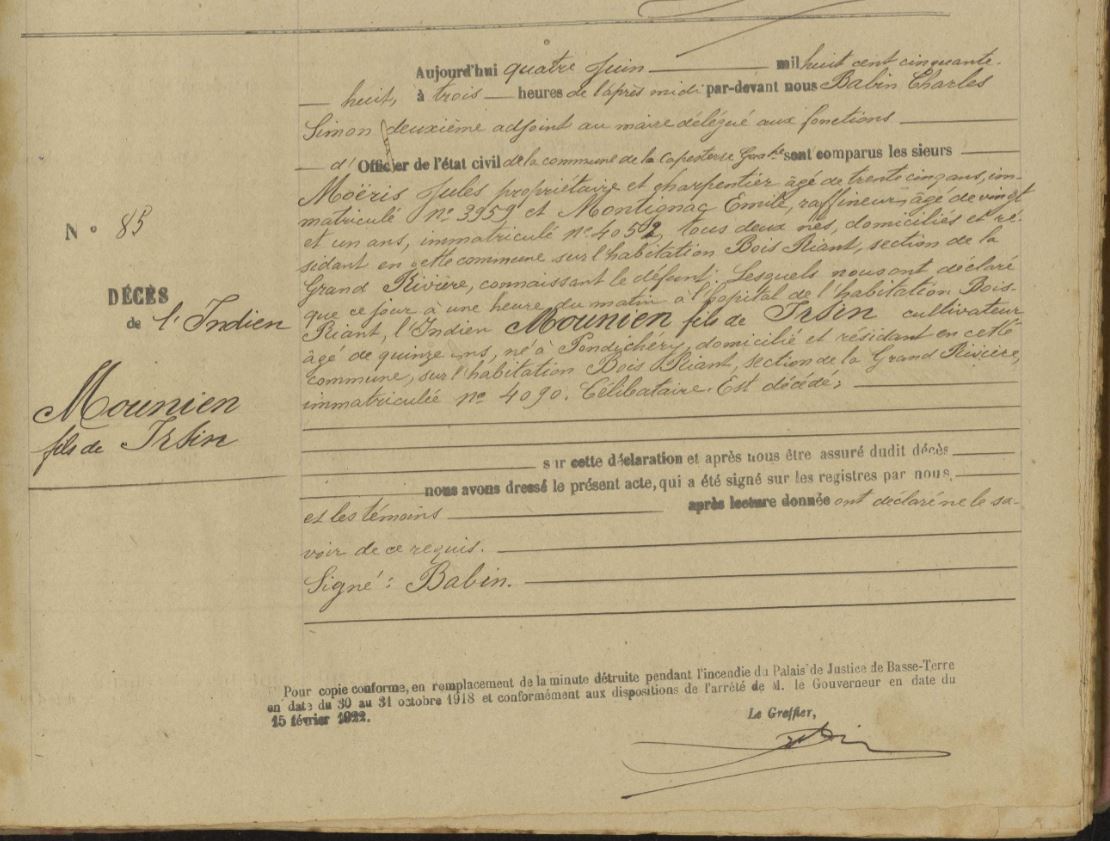 Aujourd'hui quatre Juin mil huit cent cinquante-
huit, à trois heures de l'après midi par-devant nous Babin Charles
Simon deuxième adjoint au maire délégué aux fonctions
d'Officier de l'état civil de la commune de la Capesterre Guad.pe sont comparus les sieurs
Moëris Jules propriétaire et charpentier âgé de trente cinq ans, im-
matriculé No 3959 et Montignac Emile, raffineur, âgé de vingt
et un ans, immatriculé No 4052, tous deux nés, domiciliés et ré-
sidant en cette commune sur l'habitation Bois Riant, section de la
Grand Rivière, connaissant le défunt. Lesquels nous ont déclaré
que ce jour à une heure du matin à l'hopital de l'habitation Bois-
Riant, l'Indien Mounien fils de Irsin cultivateur
âgé de quinze ans, né à Pondichéry, domicilié et résidant en cette
commune, sur l'habitation Bois Riant, section de la Grand Rivière,
immatriculé no 4090. Célibataire. Est décédé;
sur cette déclaration et après nous être assuré dudit décès
nous avons dressé le présent acte, qui a été signé sur les registres par nous,
et les témoins après lecture donnée ont déclaré ne le sa-
voir de ce requis.
Signé : Babin.
No 85
DÉCÈS
de l'Indien
Mounien
fils de Irsin
Pour copie conforme, en remplacement de la minute détruite pendant l'incendie du Palais de Justice de Basse-Terre
en date du 30 au 31 octobre 1918 et conformément aux dispositions de l'arrêté de M. le Gouverneur en date du
15 février 1922.
Le Greffier,